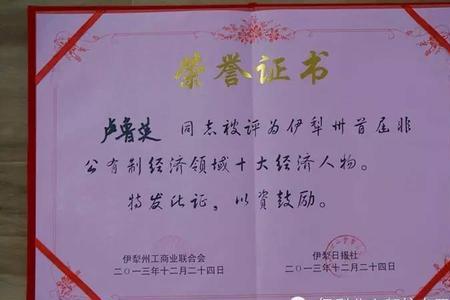 荣誉证书
卢鲁英 同志被评为伊犁州首届非
公有制经济领域十大经济人物。
特发此证，以资鼓励。
伊犁州工商业联合会 伊犁日报社
二〇一三年十二月二十四日 二〇一三年十二月二十四日